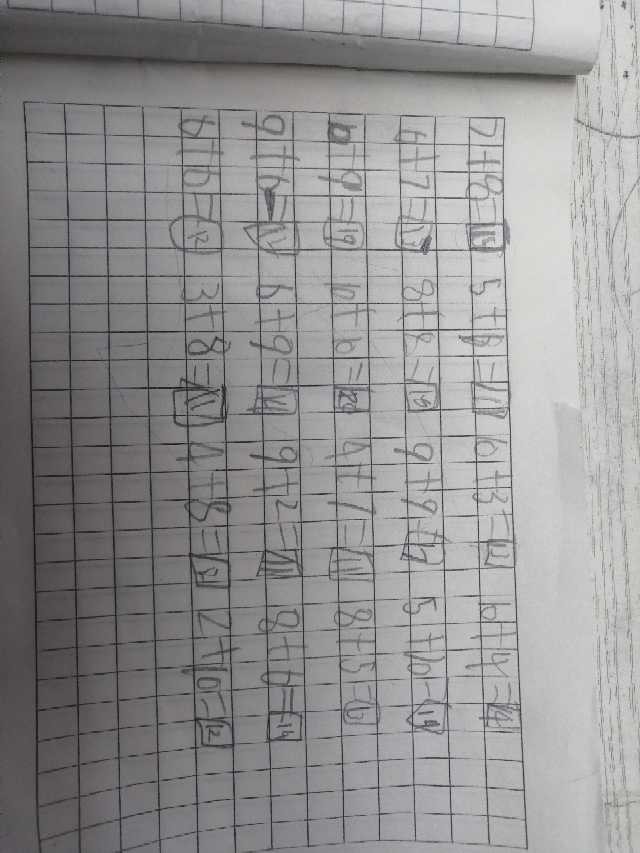 7+8=14 5+8=11 10+3=12 10+4=14
6+7=13 8+8=19 9+9=17 5+10=19
10+9=19 10+10=20 4+7=11 8+5=13
9+6=11 6+9=14 9+2=11 8+6=14
6+6=12 3+8=11 4+8=12 2+10=12